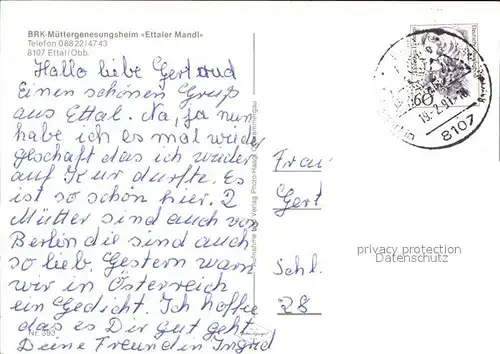 BRK-Müttergenesungsheim »Ettaler Mandl«
Telefon 08822/4743
8107 Ettal/Obb.
Hallo liebe Gertrud
Einen schönen Gruß
aus Ettal. Na, ja nun
habe ich es mal wieder
geschaft das ich wieder
auf Kur durfte. Es
ist so schön hier. 2
Mütter sind auch von
Berlin die sind auch
so lieb. Gestern warn
wir in Österreich
ein Gedicht. Ich hoffe
das es Dir gut geht
Deine Freundin Ingrid
Nr. 393
Aufnahme und Verlag Photo-Haagn, Oberammergau
60
19.2.91
8107
Frau
Gert
Schl.
28
privacy protection
Datenschutz